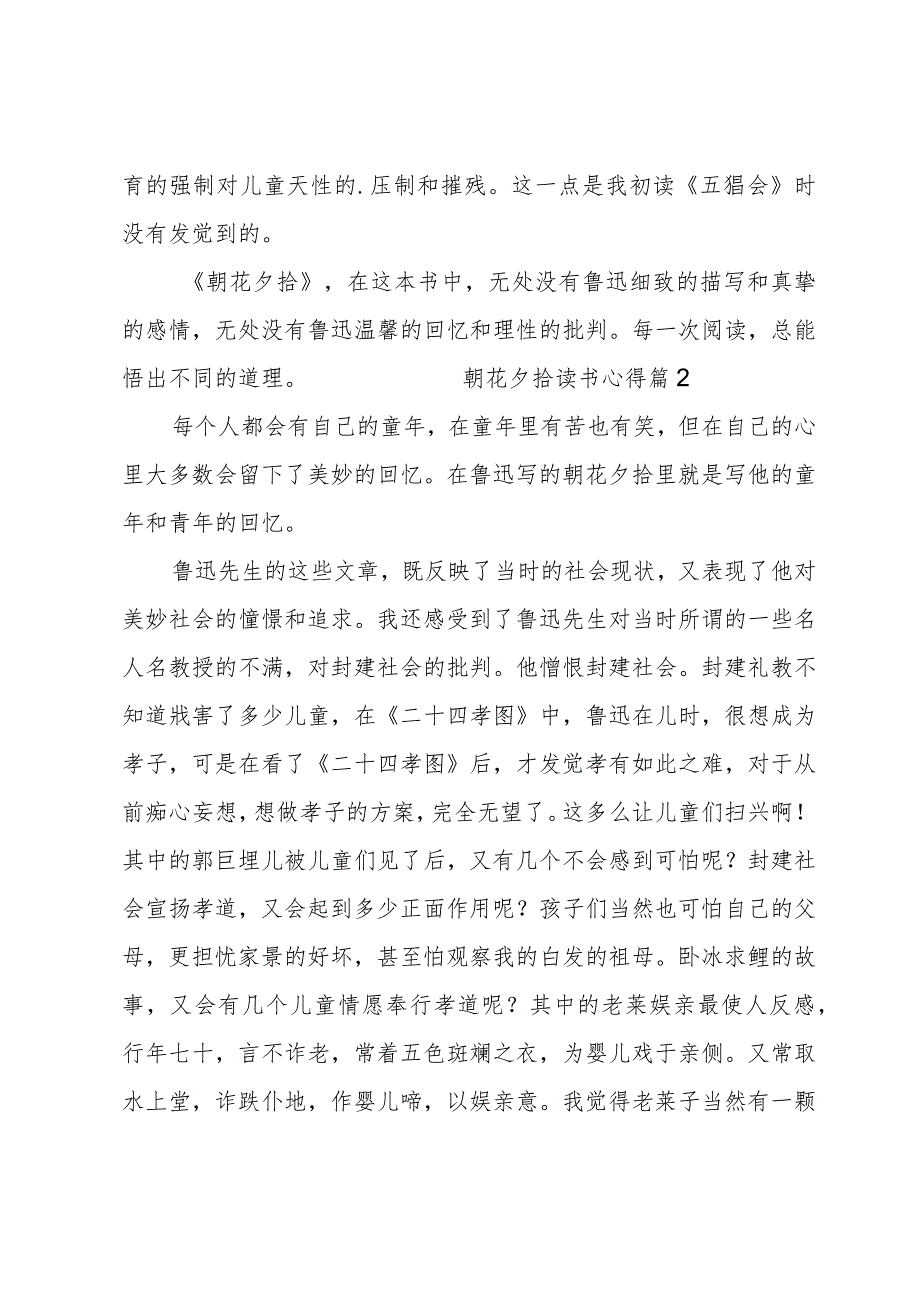 育的强制对儿童天性的.压制和摧残。这一点是我初读《五猖会》时
没有发觉到的。
《朝花夕拾》,在这本书中,无处没有鲁迅细致的描写和真挚
的感情,无处没有鲁迅温馨的回忆和理性的批判。每一次阅读,总能
悟出不同的道理。 朝花夕拾读书心得篇2
每个人都会有自己的童年,在童年里有苦也有笑,但在自己的心
里大多数会留下了美妙的回忆。在鲁迅写的朝花夕拾里就是写他的童
年和青年的回忆。
鲁迅先生的这些文章,既反映了当时的社会现状,又表现了他对
美妙社会的憧憬和追求。我还感受到了鲁迅先生对当时所谓的一些名
人名教授的不满,对封建社会的批判。他憎恨封建社会。封建礼教不
知道戕害了多少儿童,在《二十四孝图》中,鲁迅在儿时,很想成为
孝子,可是在看了《二十四孝图》后,才发觉孝有如此之难,对于从
前痴心妄想,想做孝子的方案,完全无望了。这多么让儿童们扫兴啊!
其中的郭巨埋儿被儿童们见了后,又有几个不会感到可怕呢?封建社
会宣扬孝道,又会起到多少正面作用呢?孩子们当然也可怕自己的父
母,更担忧家景的好坏,甚至怕观察我的白发的祖母。卧冰求鲤的故
事,又会有几个儿童情愿奉行孝道呢?其中的老莱娱亲最使人反感,
行年七十,言不诈老,常着五色斑斓之衣,为婴儿戏于亲侧。又常取
水上堂,诈跌仆地,作婴儿啼,以娱亲意。我觉得老莱子当然有一颗